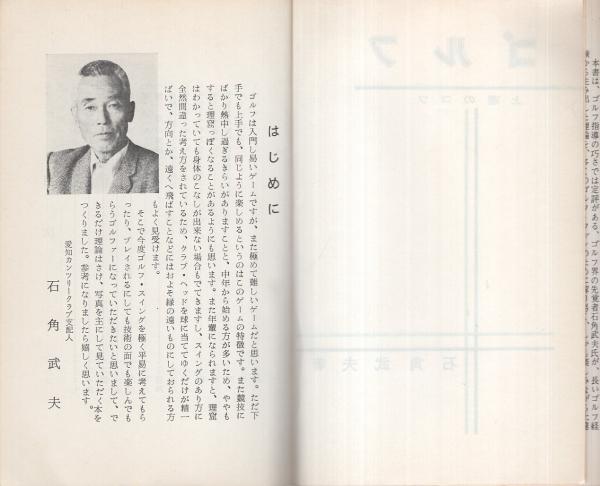 本書は、ゴルフ指導の巧さでは定評がある、ゴルフ界の先覚者石角武夫氏が、長いゴルフ経
ゴルフ
上達のコツ
石角武夫著
はじめに
ゴルフは入門し易いゲームですが、また極めて難しいゲームだと思います。ただ下
手でも上手でも、同じように楽しめるというのはこのゲームの特徴です。また競技に
ばかり熱中し過ぎるきらいがありますことと、中年から始める方が多いため、ややも
すると理窟っぽくなることがあるようにも思います。また年輩になられますと、理窟
はわかっていても身体のこなしが出来ない場合もでてきますし、スイングのあり方に
全然間違った考え方をされているため、クラブ・ヘッドを球に当ててゆくだけが精一
ぱいで、方向とか、遠くへ飛ばすことなどにはおよそ縁の遠いものにしておられる方
もよく見受けます。
そこで今度ゴルフ・スイングを極く平易に考えてもら
ったり、プレイされるにしても技術の面でも楽しんでも
らうゴルファーになっていただきたいと思いまして、で
きるだけ理論はさけ、写真を主にして見ていただく本を
つくりました。参考になりましたら嬉しく思います。
愛知カンツリークラブ支配人
石角武夫